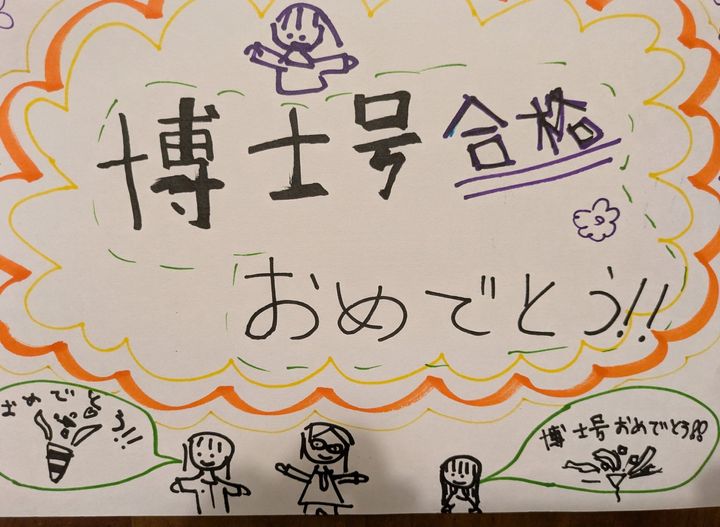 博士号合格
おめでとう!!
おめでとう!!
博士号おめでとう!!